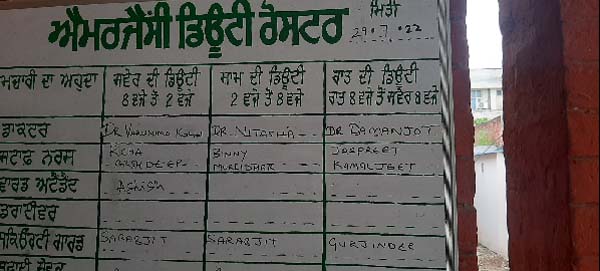 ਐਮਰਜੈਂਸੀ ਡਿਊਟੀ ਰੋਸਟਰ ਮਿਤੀ 29.7.22
ਮਚਾਰੀ ਦਾ ਅਹੁਦਾ ਸਵੇਰ ਦੀ ਡਿਊਟੀ ਸ਼ਾਮ ਦੀ ਡਿਊਟੀ ਰਾਤ ਦੀ ਡਿਊਟੀ
8 ਵਜੇ ਤੋਂ 2 ਵਜੇ 2 ਵਜੇ ਤੋਂ 8 ਵਜੇ ਰਾਤ 8 ਵਜੇ ਤੋਂ ਸਵੇਰ 8 ਵਜੇ
ਡਾਕਟਰ DR DR. NITASHA DR RAMANJOT
ਸਟਾਫ਼ ਨਰਸ BINNY JASPREET
ARSHDEEP MURLIDHAR KAMALJEET
ਵਾਰਡ ਅਟੈਂਡੈਂਟ Ashish
ਡਰਾਈਵਰ
ਸਕਿਓਰਿਟੀ ਗਾਰਡ SARABJIT SARABJIT GURJINDER